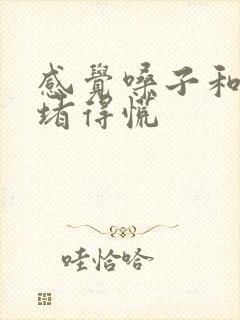 感覺嗓子和
堵得慌
哇恰哈